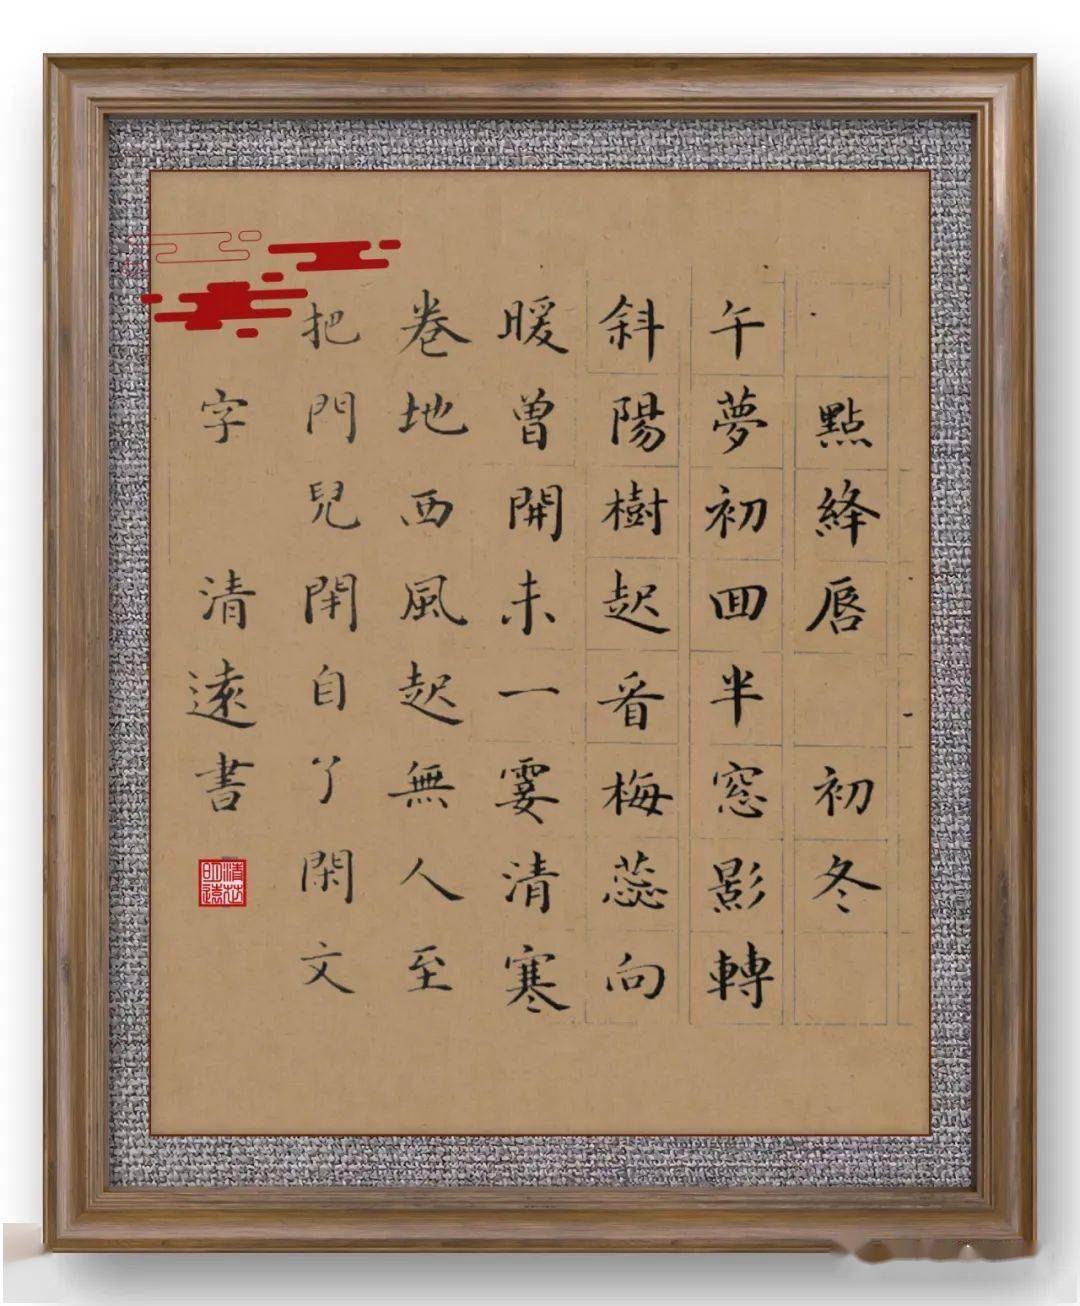 點絳唇 初冬
午夢初囬半窓影轉
斜陽樹起看梅蕊向
暖曾開未一霎清寒
卷地西風起無人至
把門兒閇自了閑文
字 清遠書